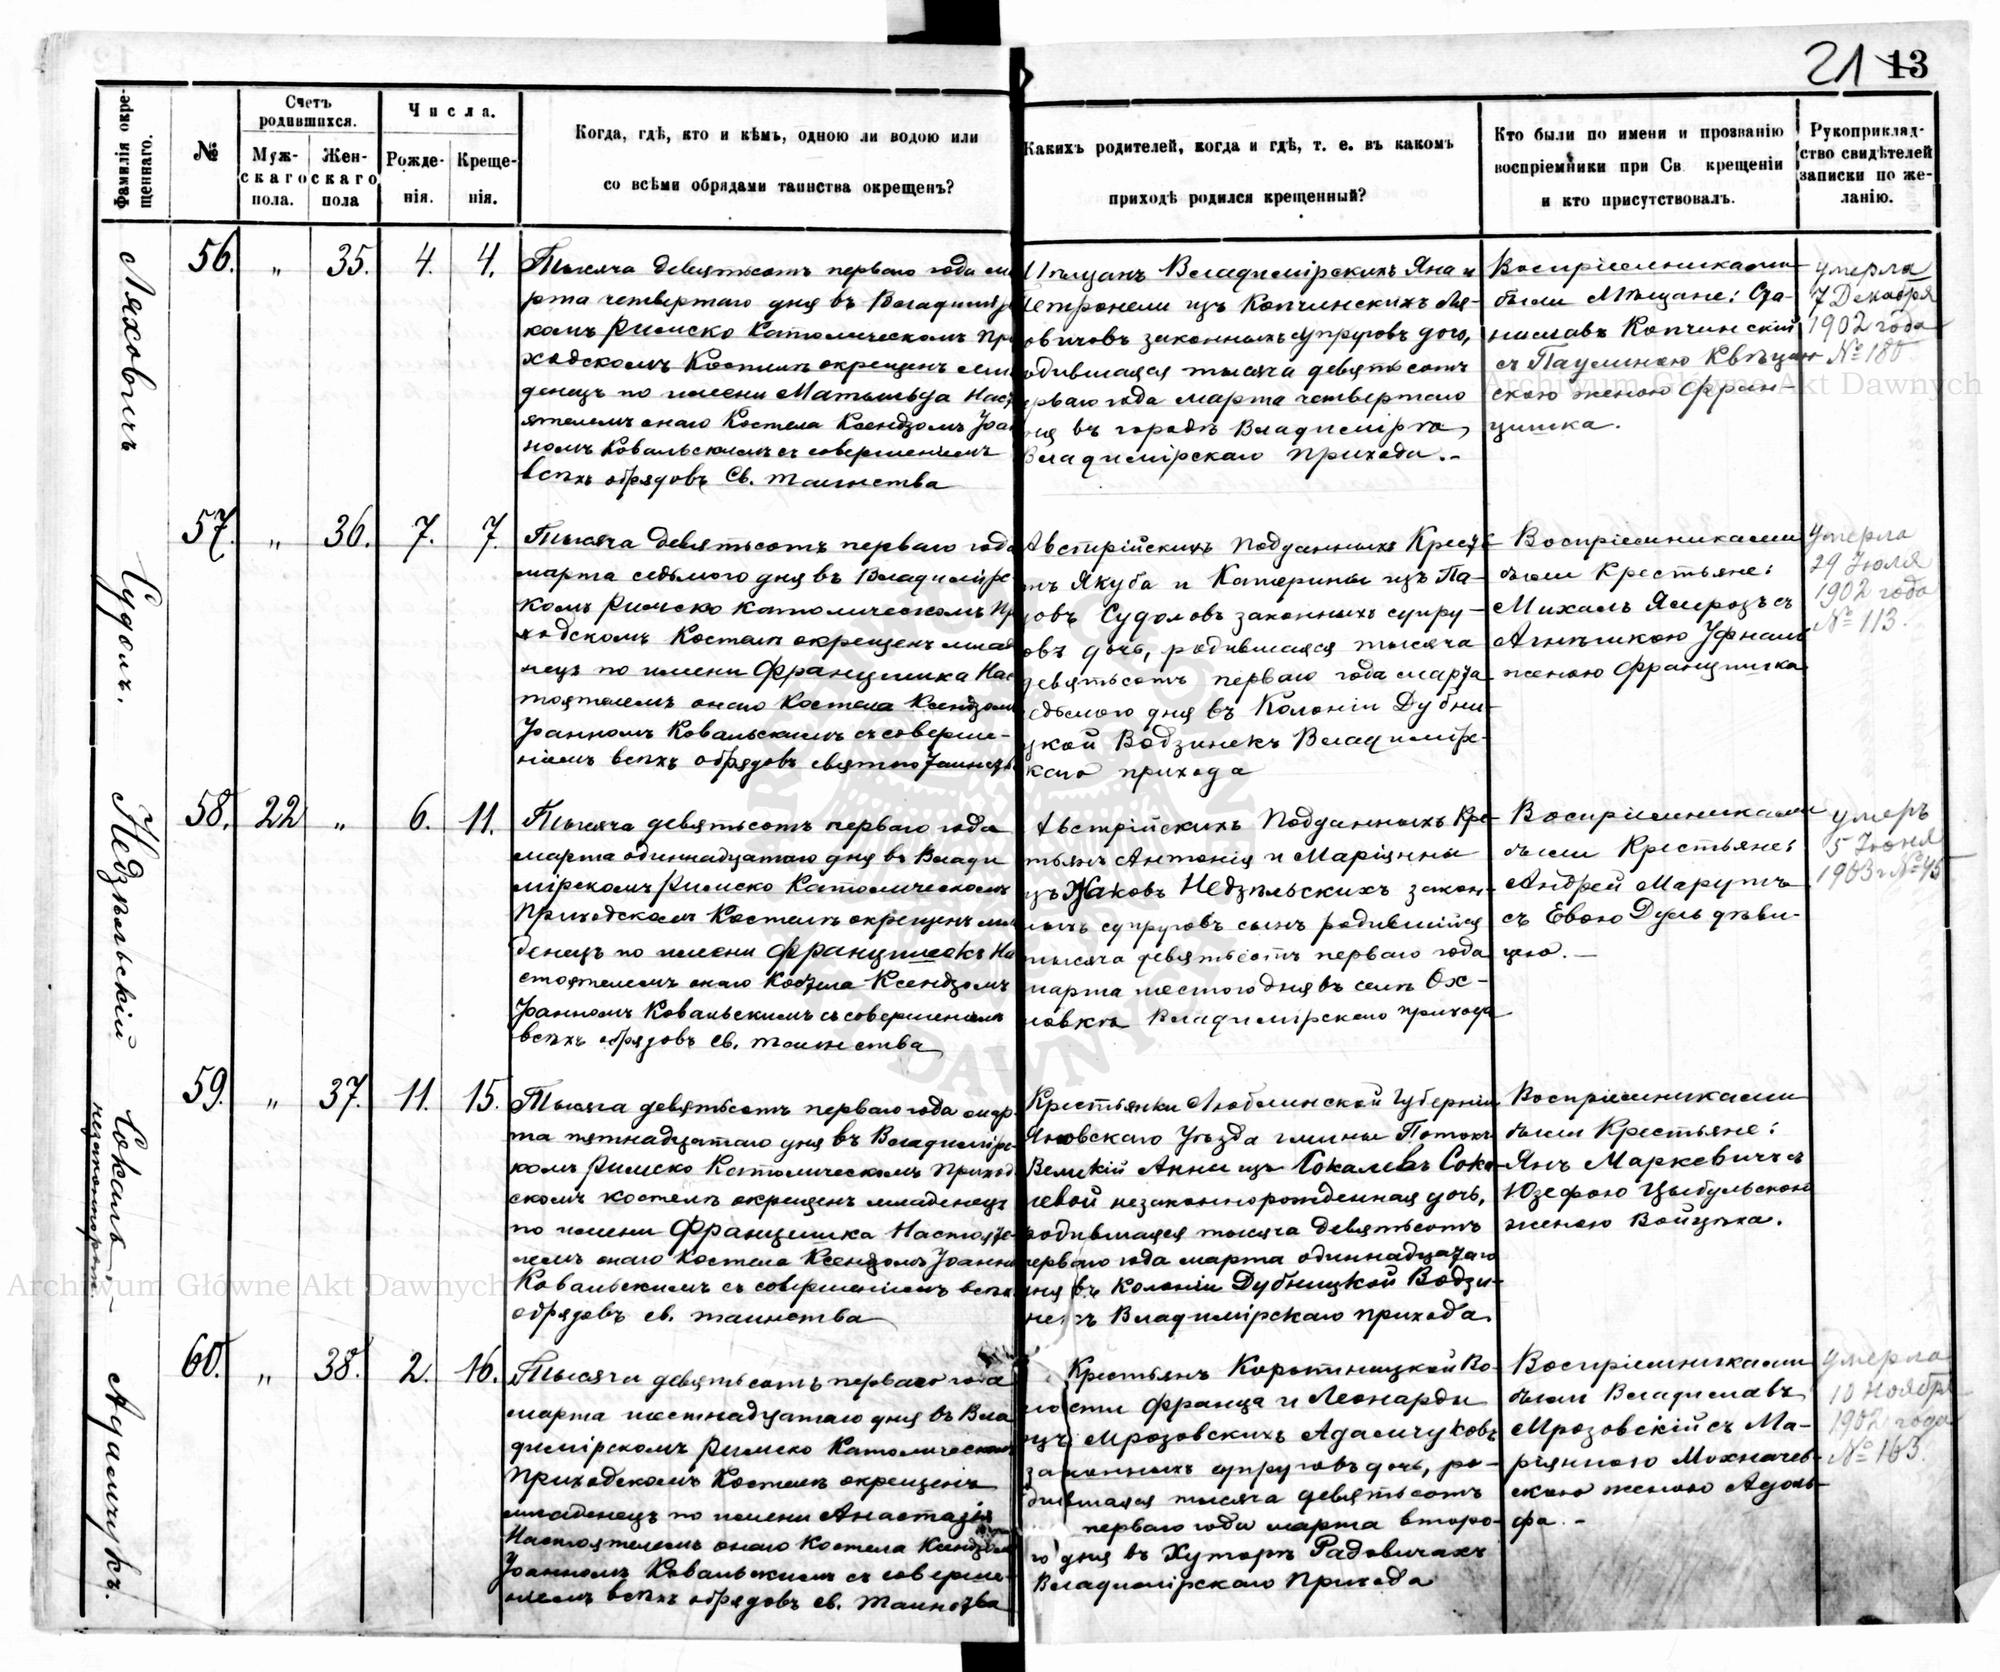 21 13
Фамилія окре-
щеннаго.
№
Счетъ
родившихся.
Муж-
скаго
пола.
Жен-
скаго
пола
Числа.
Рожде-
нія.
Креще-
нія.
Когда, гдѣ, кто и кѣмъ, одною ли водою или
со всѣми обрядами таинства окрещенъ?
Какихъ родителей, когда и гдѣ, т. е. въ какомъ
приходѣ родился крещенный?
Кто были по имени и прозванію
воспріемники при Св. крещеніи
и кто присутствовалъ.
Рукоприклад-
ство свидѣтелей
записки по же-
ланію.
Ляховичъ
56. " 35. 4. 4.
Тысяча девятьсотъ перваго года ма
рта четвертаго дня въ Владимірс
комъ Римско Католическомъ При
ходскомъ Костелѣ окрещенъ мла
денецъ по имени Матыльда Наст
ятелемъ онаго Костела Ксендзомъ Іоан
номъ Ковальскимъ съ совершеніемъ
всѣхъ обрядовъ Св. таинства
Мѣщанъ Владимірскихъ Яна и
Петронели изъ Копчинскихъ Ля-
овичовъ законныхъ супруговъ дочь,
одившаяся тысяча девятьсотъ
ерваго года марта четвертаго
ня въ городѣ Владимірѣ,
Владимірскаго прихода.-
Воспріемниками
были Мѣщане: Ста-
ниславъ Копчинскій
съ Паулиною Квѣцин
скою женою Фран-
цишка.
умерла
7 Декабря
1902 года
№ 180
Судолъ.
57. " 36. 7. 7.
Тысяча девятьсотъ перваго года
марта седьмого дня въ Владимірс
комъ Римско Католическомъ При
ходскомъ Костелѣ окрещенъ млад
нецъ по имени Францишка Нас
тоятелемъ онаго Костела Ксендзом
Іоанномъ Ковальскимъ съ соверше-
ніемъ всѣхъ обрядовъ святого таинств
Австрійскихъ Подданныхъ Крест
нъ Якуба и Катерины изъ Па-
зовъ Судоловъ законныхъ супру-
овъ дочь, родившаяся тысяча
девятьсотъ перваго года марта
едьмого дня въ Колоніи Дубни-
цкой Водзинекъ Владимір-
скаго прихода
Воспріемниками
были Крестьяне:
Михалъ Ямрозъ съ
Агнѣшкою Уфналь
женою Францишка
Умерла
29 Іюля
1902 года
№ 113.
Недзѣльскій
58. 22 " 6. 11.
Тысяча девятьсотъ перваго года
марта одиннадцатаго дня въ Влади
мірскомъ Римско Католическомъ
Приходскомъ Костелѣ окрещенъ мла
денецъ по имени Францишекъ На
стоятелемъ онаго Костела Ксендзомъ
Іоанномъ Ковальскимъ съ совершеніемъ
всѣхъ обрядовъ св. таинства
Австрійскихъ Подданныхъ Кре-
тьянъ Антонія и Маріянны
изъ Жаковъ Недзѣльскихъ закон-
ныхъ супруговъ сынъ родившійся
тысяча девятьсотъ перваго года
марта шестого дня въ селѣ Ох-
новкѣ Владимірскаго прихода
Воспріемниками
были Крестьяне:
Андрей Марутъ
съ Евою Дуль дѣви-
цею.-
умеръ
5 Іюня
1903 г № 45
Сокаль -
незаконнорожд.
59. " 37. 11. 15.
Тысяча девятьсотъ перваго года мар-
та пятнадцатаго дня въ Владимірс-
комъ Римско Католическомъ Приход
скомъ Костелѣ окрещенъ младенецъ
по имени Францишка Настояте-
лемъ онаго Костела Ксендзомъ Іоанн
Ковальскимъ съ совершеніемъ всѣхъ
обрядовъ св. таинства
Крестьянки Люблинской Губерніи
Яновскаго Уѣзда гмины Потокъ
Велькій Анны изъ Сокалевъ Сока-
левой незаконнорожденная дочь,
родившаяся тысяча девятьсотъ
перваго года марта одиннадцатаго
дня въ Колоніи Дубницкой Водзи-
некъ Владимірскаго прихода.
Воспріемниками
были Крестьяне:
Янъ Маркевичъ съ
Юзефою Цыбульскою
женою Войцѣха.
Адамчукъ.
60. " 38. 2. 16.
Тысяча девятьсотъ перваго года
марта шестнадцатаго дня въ Вла
димірскомъ Римско Католическомъ
Приходскомъ Костелѣ окрещенъ
младенецъ по имени Анастазія
Настоятелемъ онаго Костела Ксендзомъ
Іоанномъ Ковальскимъ съ соверше-
ніемъ всѣхъ обрядовъ св. таинства
Крестьянъ Коротницкой Во-
лости Франца и Леонарды
изъ Мрозовскихъ Адамчуковъ
законныхъ супруговъ дочь, ро-
дившаяся тысяча девятьсотъ
перваго года марта второ-
го дня въ Хуторѣ Радовичахъ
Владимірскаго Прихода
Воспріемниками
были Владиславъ
Мрозовскій съ Ма-
ріянною Мохначев-
скою женою Адоль-
фа.-
умерла
10 Ноября
1902 года
№ 163.
Archiwum Główne Akt Dawnych
Archiwum Główne Akt Dawnych